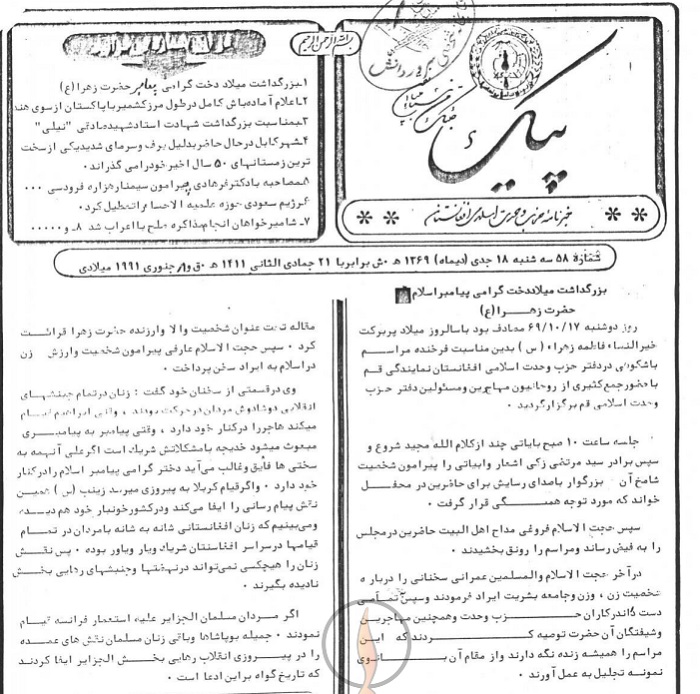 بسم الله الرحمن الرحیم
پیک
خبرنامه حزب وحدت اسلامی افغانستان
شماره ۵۸ سه شنبه ۱۸ جدی (دیماه) ۱۳۶۹ ه‍ ۰ش برابر با ۲۱ جمادی الثانی ۱۴۱۱ ه‍ ۰ق و ۸ جنوری ۱۹۹۱ میلادی
۱ـبزرگداشت میلاد دخت گرامی پیامبر حضرت زهرا (ع)
۲ـاعلام آماده باش کامل در طول مرز کشمیر با پاکستان از سوی هند
۳ـبمناسبت بزرگداشت شهادت استاد شهید صادقی "نیلی"
۴ـشهر کابل در حال حاضر بدلیل برف و سرمای شدید یکی از سخت
ترین زمستانهای ۵۰ سال اخیر خود را می گذراند ۰
۵ـمصاحبه با دکتر فرهادی پیرامون سیمنار هزاره فردوسی ۰۰۰
۶ـرژیم سعودی حوزه علمیه الاحساء را تعطیل کرد ۰
۷ـ شامیر خواهان انجام مذاکره صلح با اعراب شد ۸ـ و ۰۰۰۰۰
بزرگداشت میلاد دخت گرامی پیامبر اسلام
حضرت زهرا (ع)
روز دوشنبه ۶۹/۱۰/۱۷ مصادف بود با سالروز میلاد پربرکت
خیرالنساء فاطمه زهراء (س) بدین مناسبت فرخنده مراسم
باشکوهی در دفتر حزب وحدت اسلامی افغانستان نمایندگی قم
با حضور جمع کثیری از روحانیون مهاجرین و مسئولین دفتر حزب
وحدت اسلامی قم برگزار گردید ۰
جلسه ساعت ۱۰ صبح با یاتی چند از کلام الله مجید شروع و
سپس برادر سید مرتضی زکی اشعار و ابیاتی را پیرامون شخصیت
شامخ آن بزرگوار با صدای رسایش برای حاضرین در محفل
خواند که مورد توجه همگی قرار گرفت ۰
سپس حجت الاسلام فروغی مداح اهل البیت حاضرین در مجلس
را به فیض رساند و مراسم را رونق بخشیدند ۰
در آخر حجت الاسلام والمسلمین عمرانی سخنانی را درباره
شخصیت زن ، وزن و جامعه بشریت ایراد فرمودند و سپس تمامی
دست اندرکاران حزب وحدت و همچنین مهاجرین
و شیفتگان آن حضرت توصیه کردند که این
مراسم را همیشه زنده نگه دارند و از مقام آن بانوی
نمونه تجلیل به عمل آورند ۰
مقاله تحت عنوان شخصیت والا و ارزنده حضرت زهرا قرائت
کرد ۰ سپس حجت الاسلام عارفی پیرامون شخصیت و ارزش زن
در اسلام به ایراد سخن پرداخت ۰
وی در قسمتی از سخنان خود گفت : زنان در تمام جنبشهای
انقلابی دوشادوش مردان در حرکت بودند ، وقتی ابراهیم قیام
میکند هاجر را در کنار خود دارد ، وقتی پیامبر به پیامبری
مبعوث میشود خدیجه با مشکلاتش شریک است اگر علی آنهمه به
سختی ها فایق و غالب می آید دختر گرامی پیامبر اسلام را در کنار
خود دارد ۰ و اگر قیام کربلا به پیروزی میرسد زینب (س) همین
نقش پیام رسانی را ایفا می کند و در کشور خونبار خود هم دیده
و می بینیم که زنان افغانستانی شانه به شانه با مردان در تمام
قیامها در سراسر افغانستان شریک و یار و یاور بوده ۰ پس نقش
زنان را هیچکسی نمی تواند در نهضتها و جنبشهای رهایی بخش
نادیده بگیرند ۰
اگر مردان مسلمان الجزایر علیه استعمار فرانسه قیام
نمودند ۰ جمیله بوپاشاها و باقی زنان مسلمان نقش های عمده
را در پیروزی انقلاب رهایی بخش الجزایر ایفا کردند
که تاریخ گواه بر این ادعا است ۰